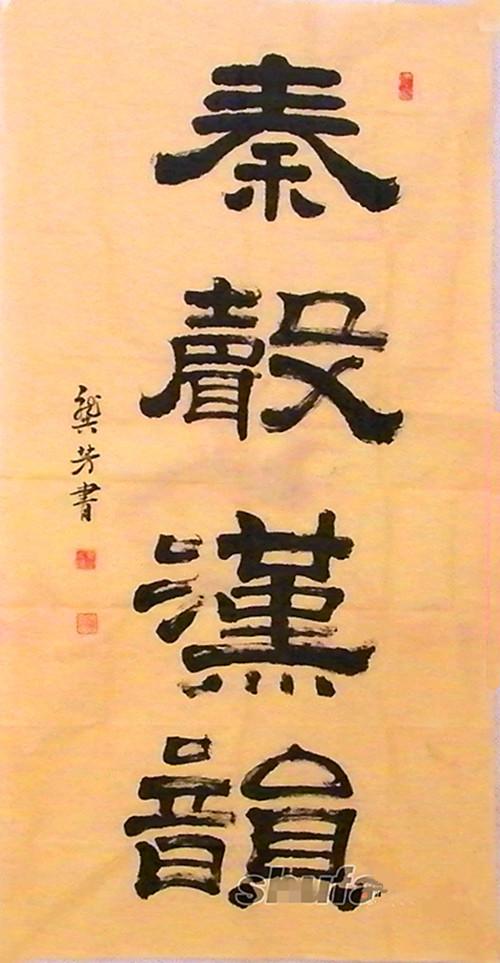 秦聲漢韻
龔芳書
shufa